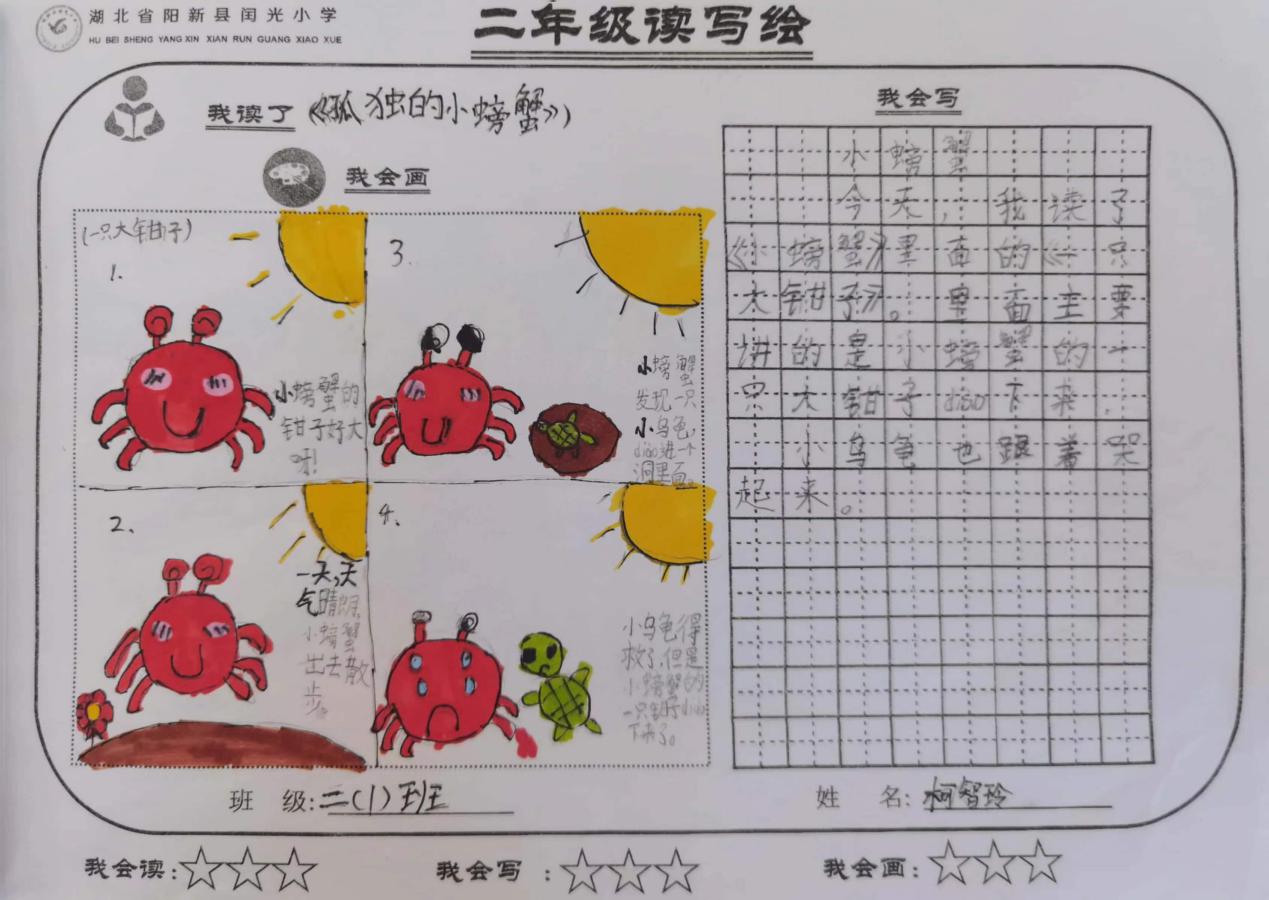 湖北省阳新县闰光小学
HU BEI SHENG YANG XIN XIAN RUN GUANG XIAO XUE
二年级读写绘
我读了《孤独的小螃蟹》)
我会画
(一只大钳子)
1.
小螃蟹的
钳子好大
呀!
2、
一天,天
气晴朗,
小螃蟹
出去散
步。
3.
小螃蟹
发现一只
小乌龟,
diào进一个
洞里面。
4、
小乌龟得
救了,但是
小螃蟹的
一只钳子diào
下来了。
我会写
小螃蟹
今天,我读了
《小螃蟹》里面的《一只
大钳子》。里面主要
讲的是小螃蟹的一
只大钳子diào下来,
小乌龟也跟着哭
起来。
班 级:二(1)班
姓 名:柯智玲
我会读:☆☆☆
我会写:☆☆☆
我会画:☆☆☆